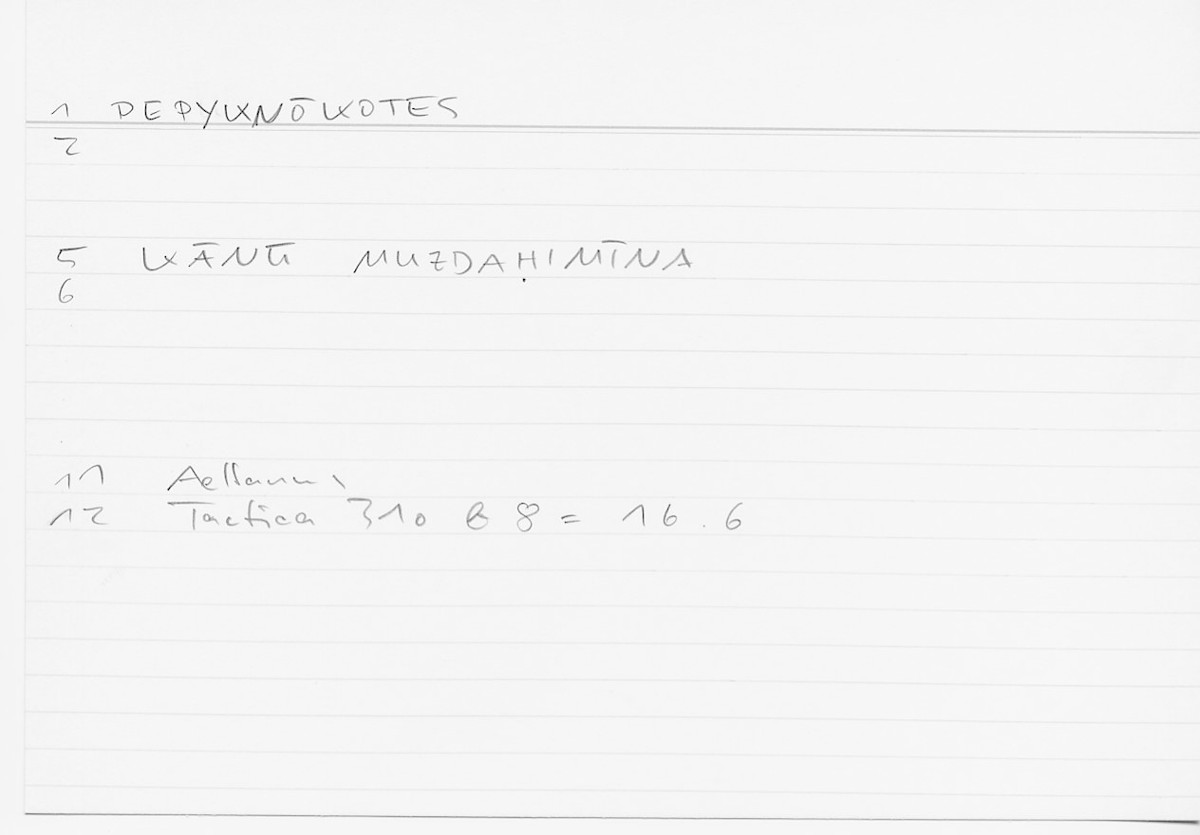 1 PEPYKNŌKOTES
2
5 KĀNŪ MUZDAḤIMĪNA
6
11 Aelianus
12 Tactica 310 b 8 = 16.6